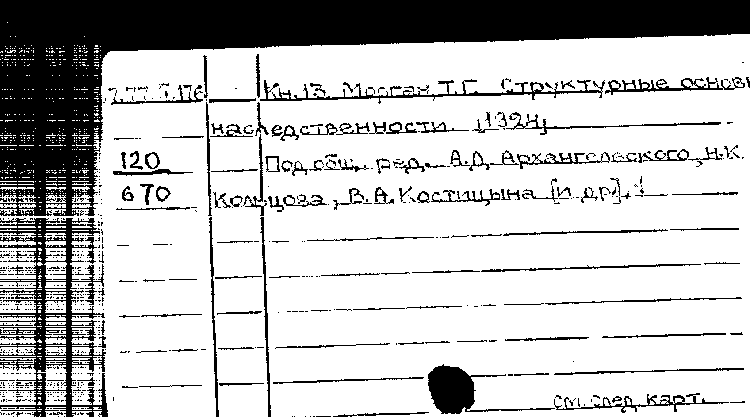 Кн.13. Морган, Т.Г. Структурные основы
наследственности. [1924]
120
Под общ. ред. А.Д. Архангельского, Н.К.
670
Кольцова, В.А. Костицына [и др].
см. след. карт.